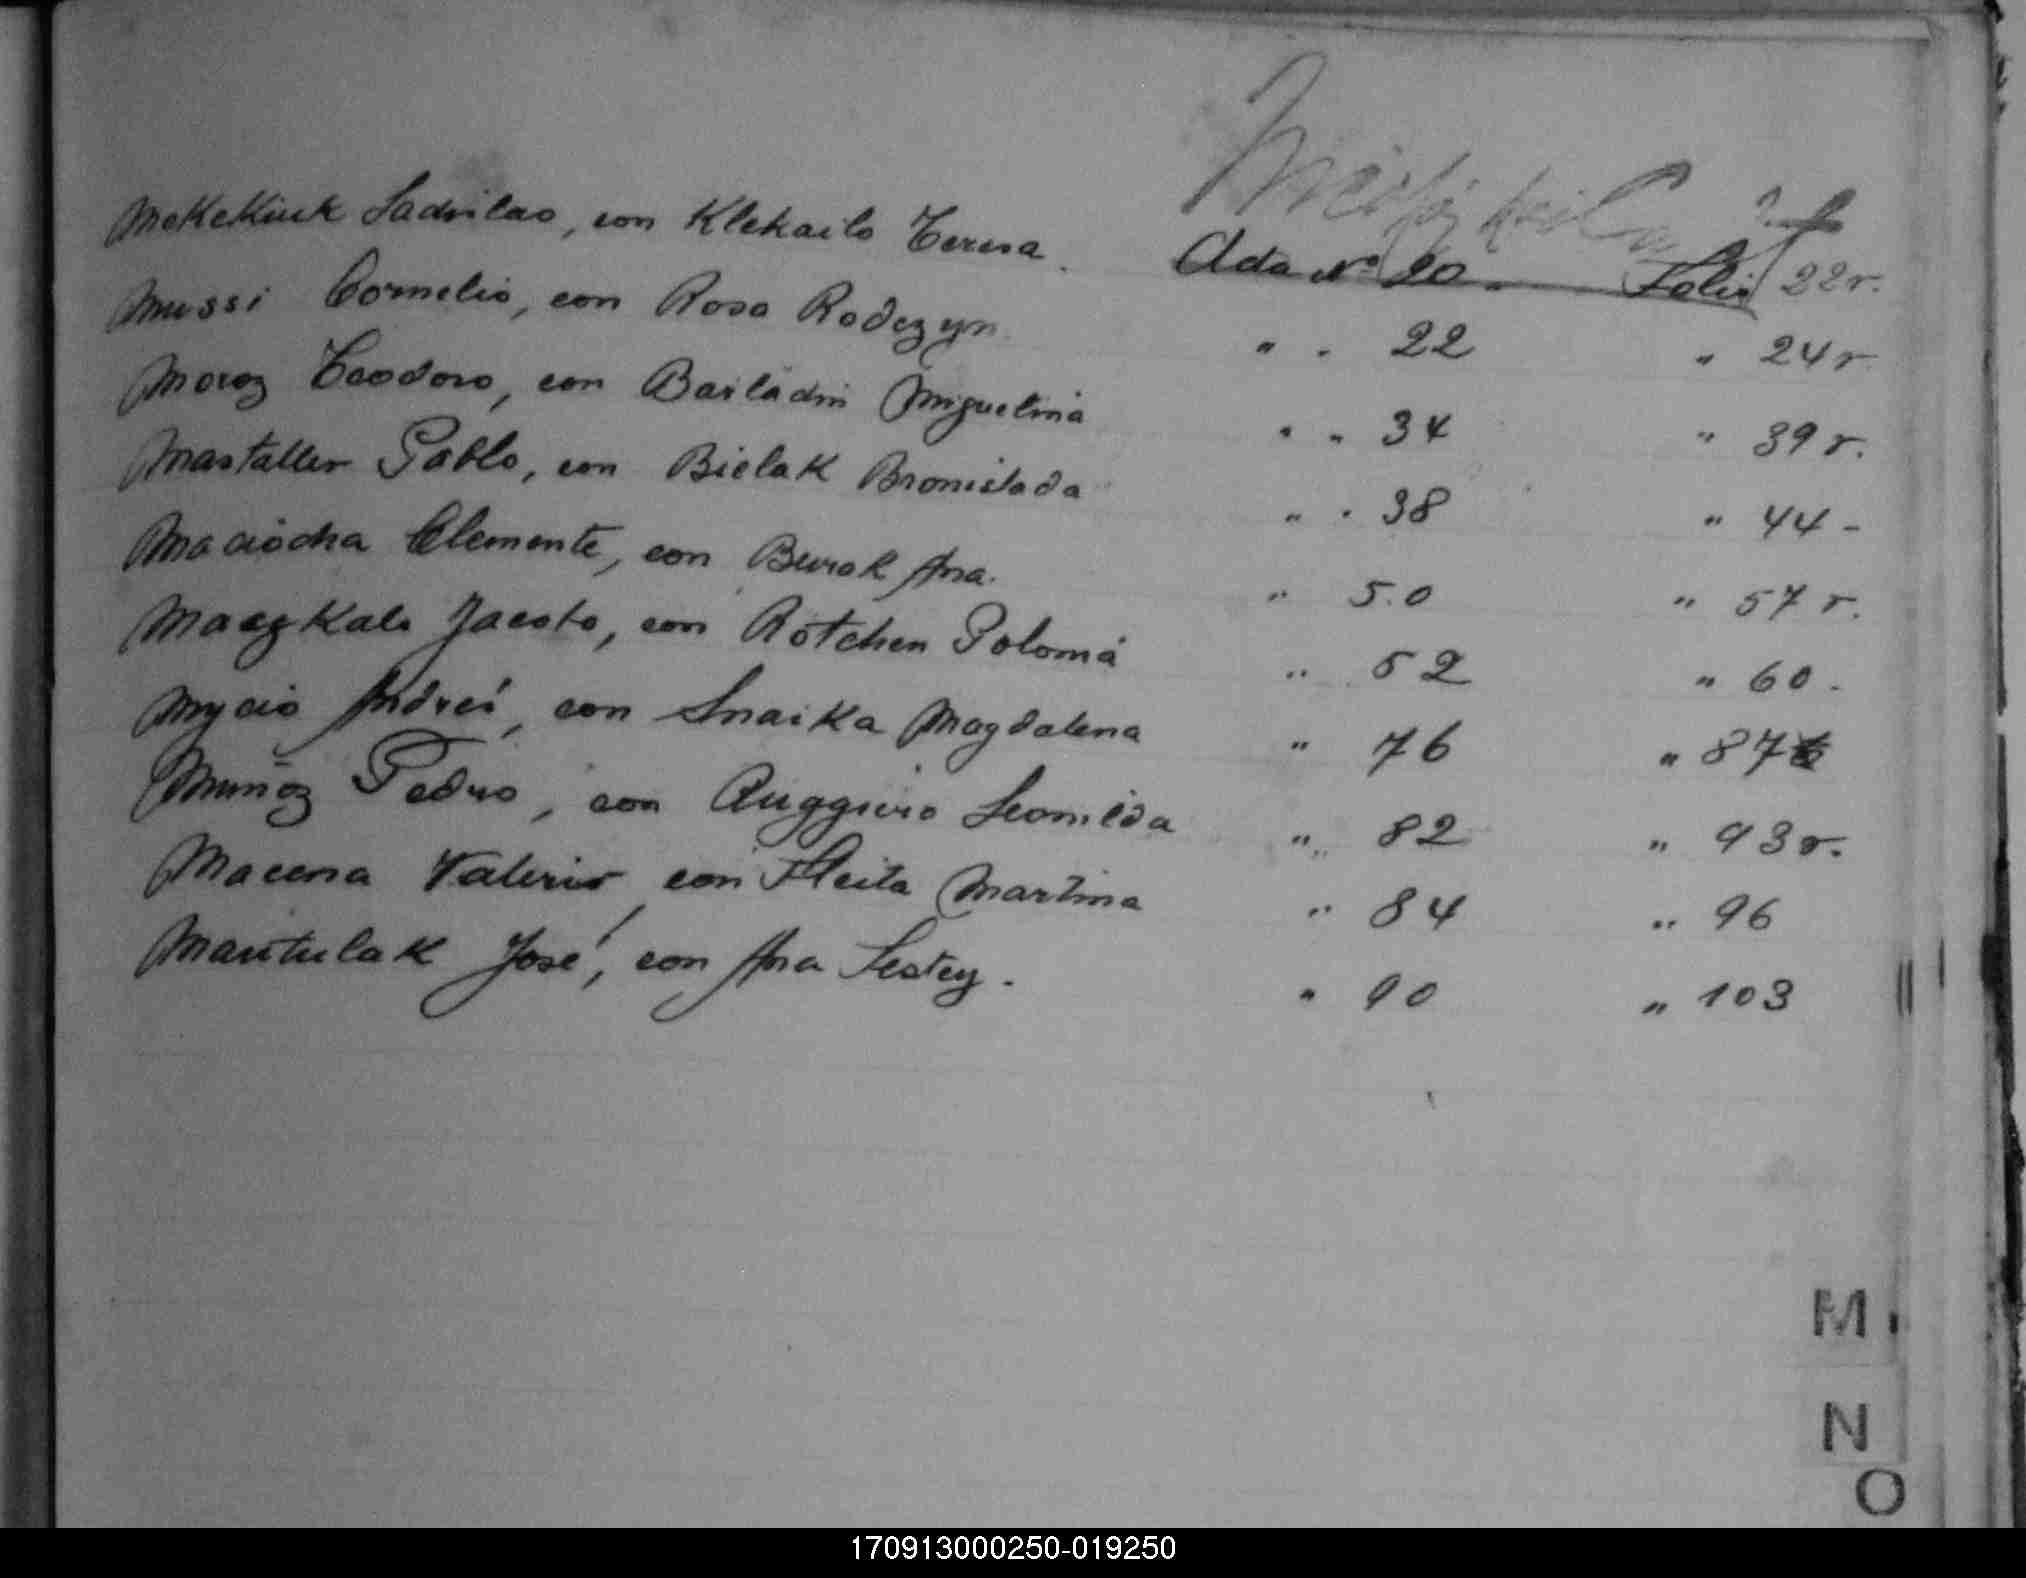 Mekekiuk Ladislao, con Klekailo Teresa. Acta Nº 20. Folio 22r.
Mussi Cornelio, con Rosa Rodezyn " " 22 " 24 r
Moroz Teodoro, con Bailadni Miguelina " " 34 " 39 r.
Mastaller Pablo, con Bielak Bronislada " " 38 " 44 -
Maciocha Clemente, con Burak Ana. " 50 " 57 r.
Maczkalo Jacobo, con Rotchen Polonia " 52 " 60.
Mycio Andrés, con Snaika Magdalena " 76 " 87
Muñoz Pedro, con Ruggiero Leonilda " 82 " 93r.
Macena Valerio, con Fleita Martina " 84 " 96
Mantulak José, con Ana Sestey. " 90 " 103
M
N
O
170913000250-019250